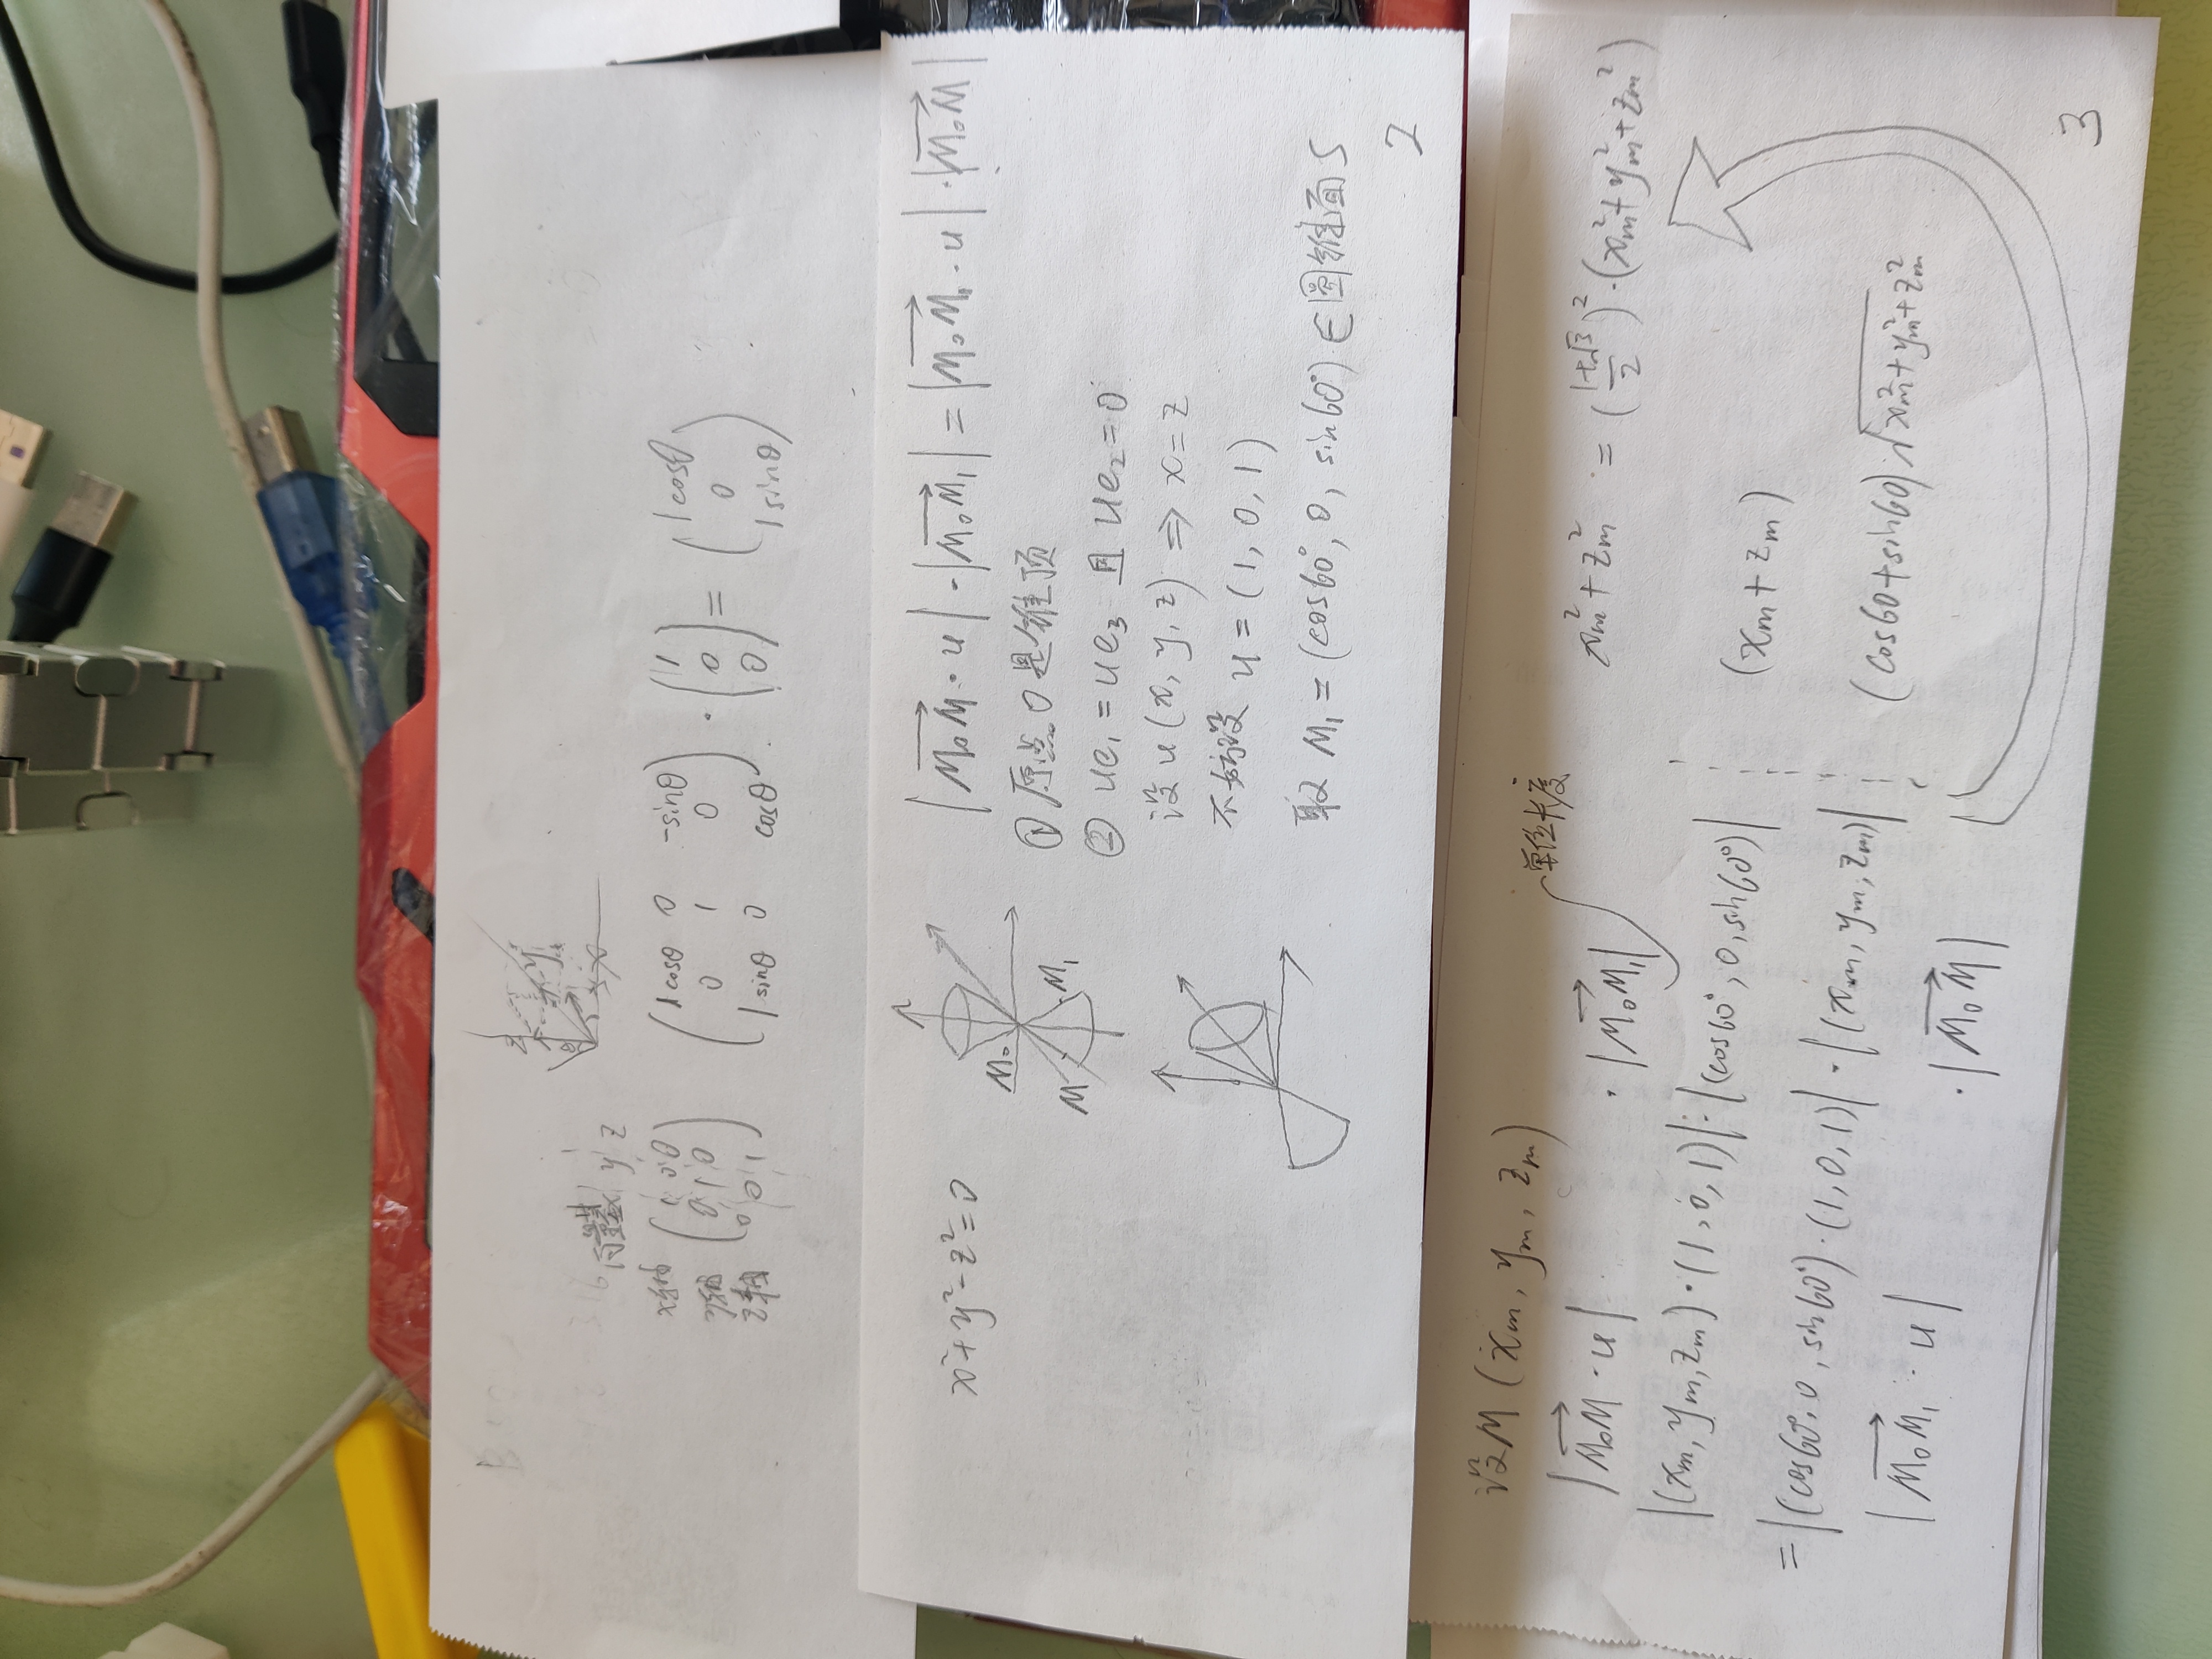 向量基 x y z
x轴 ( 1 0 0 )
y轴 ( 0 1 0 )
z轴 ( 0 0 1 )
( 1cosθ 0 -sinθ ) · ( 1 ) = ( 1cosθ )
( 0 1 0 ) ( 0 ) ( 0 )
( 1sinθ 0 cosθ ) ( 0 ) ( 1sinθ )
z
y
x
θ
x²+y²-z²=0
M₀
M
M₁
|M₀M·u|·|M₀M₁| = |M₀M₁·u|·|M₀M|
① 原点0是锥顶
② ue₁=ue₃ 且 ue₂=0
设 u(x,y,z) ⇒ x=z
不妨设 u=(1,0,1)
取 M₁=(cos60°,0,sin60°)∈圆锥面S
2
设M(xm,ym,zm)
单位长度
|M₀M·u| ·|M₀M₁|
|(xm,ym,zm)·(1,0,1)|·|(cos60°,0,sin60°)|
=|(cos60°,0,sin60°)·(1,0,1)|·|(xm,ym,zm)|
|M₀M₁·u| ·|M₀M|
xm²+zm² = ((1+√3)/2)²·(xm²+ym²+zm²)
(xm+zm)
(cos60+sin60)·√xm²+ym²+zm²
3